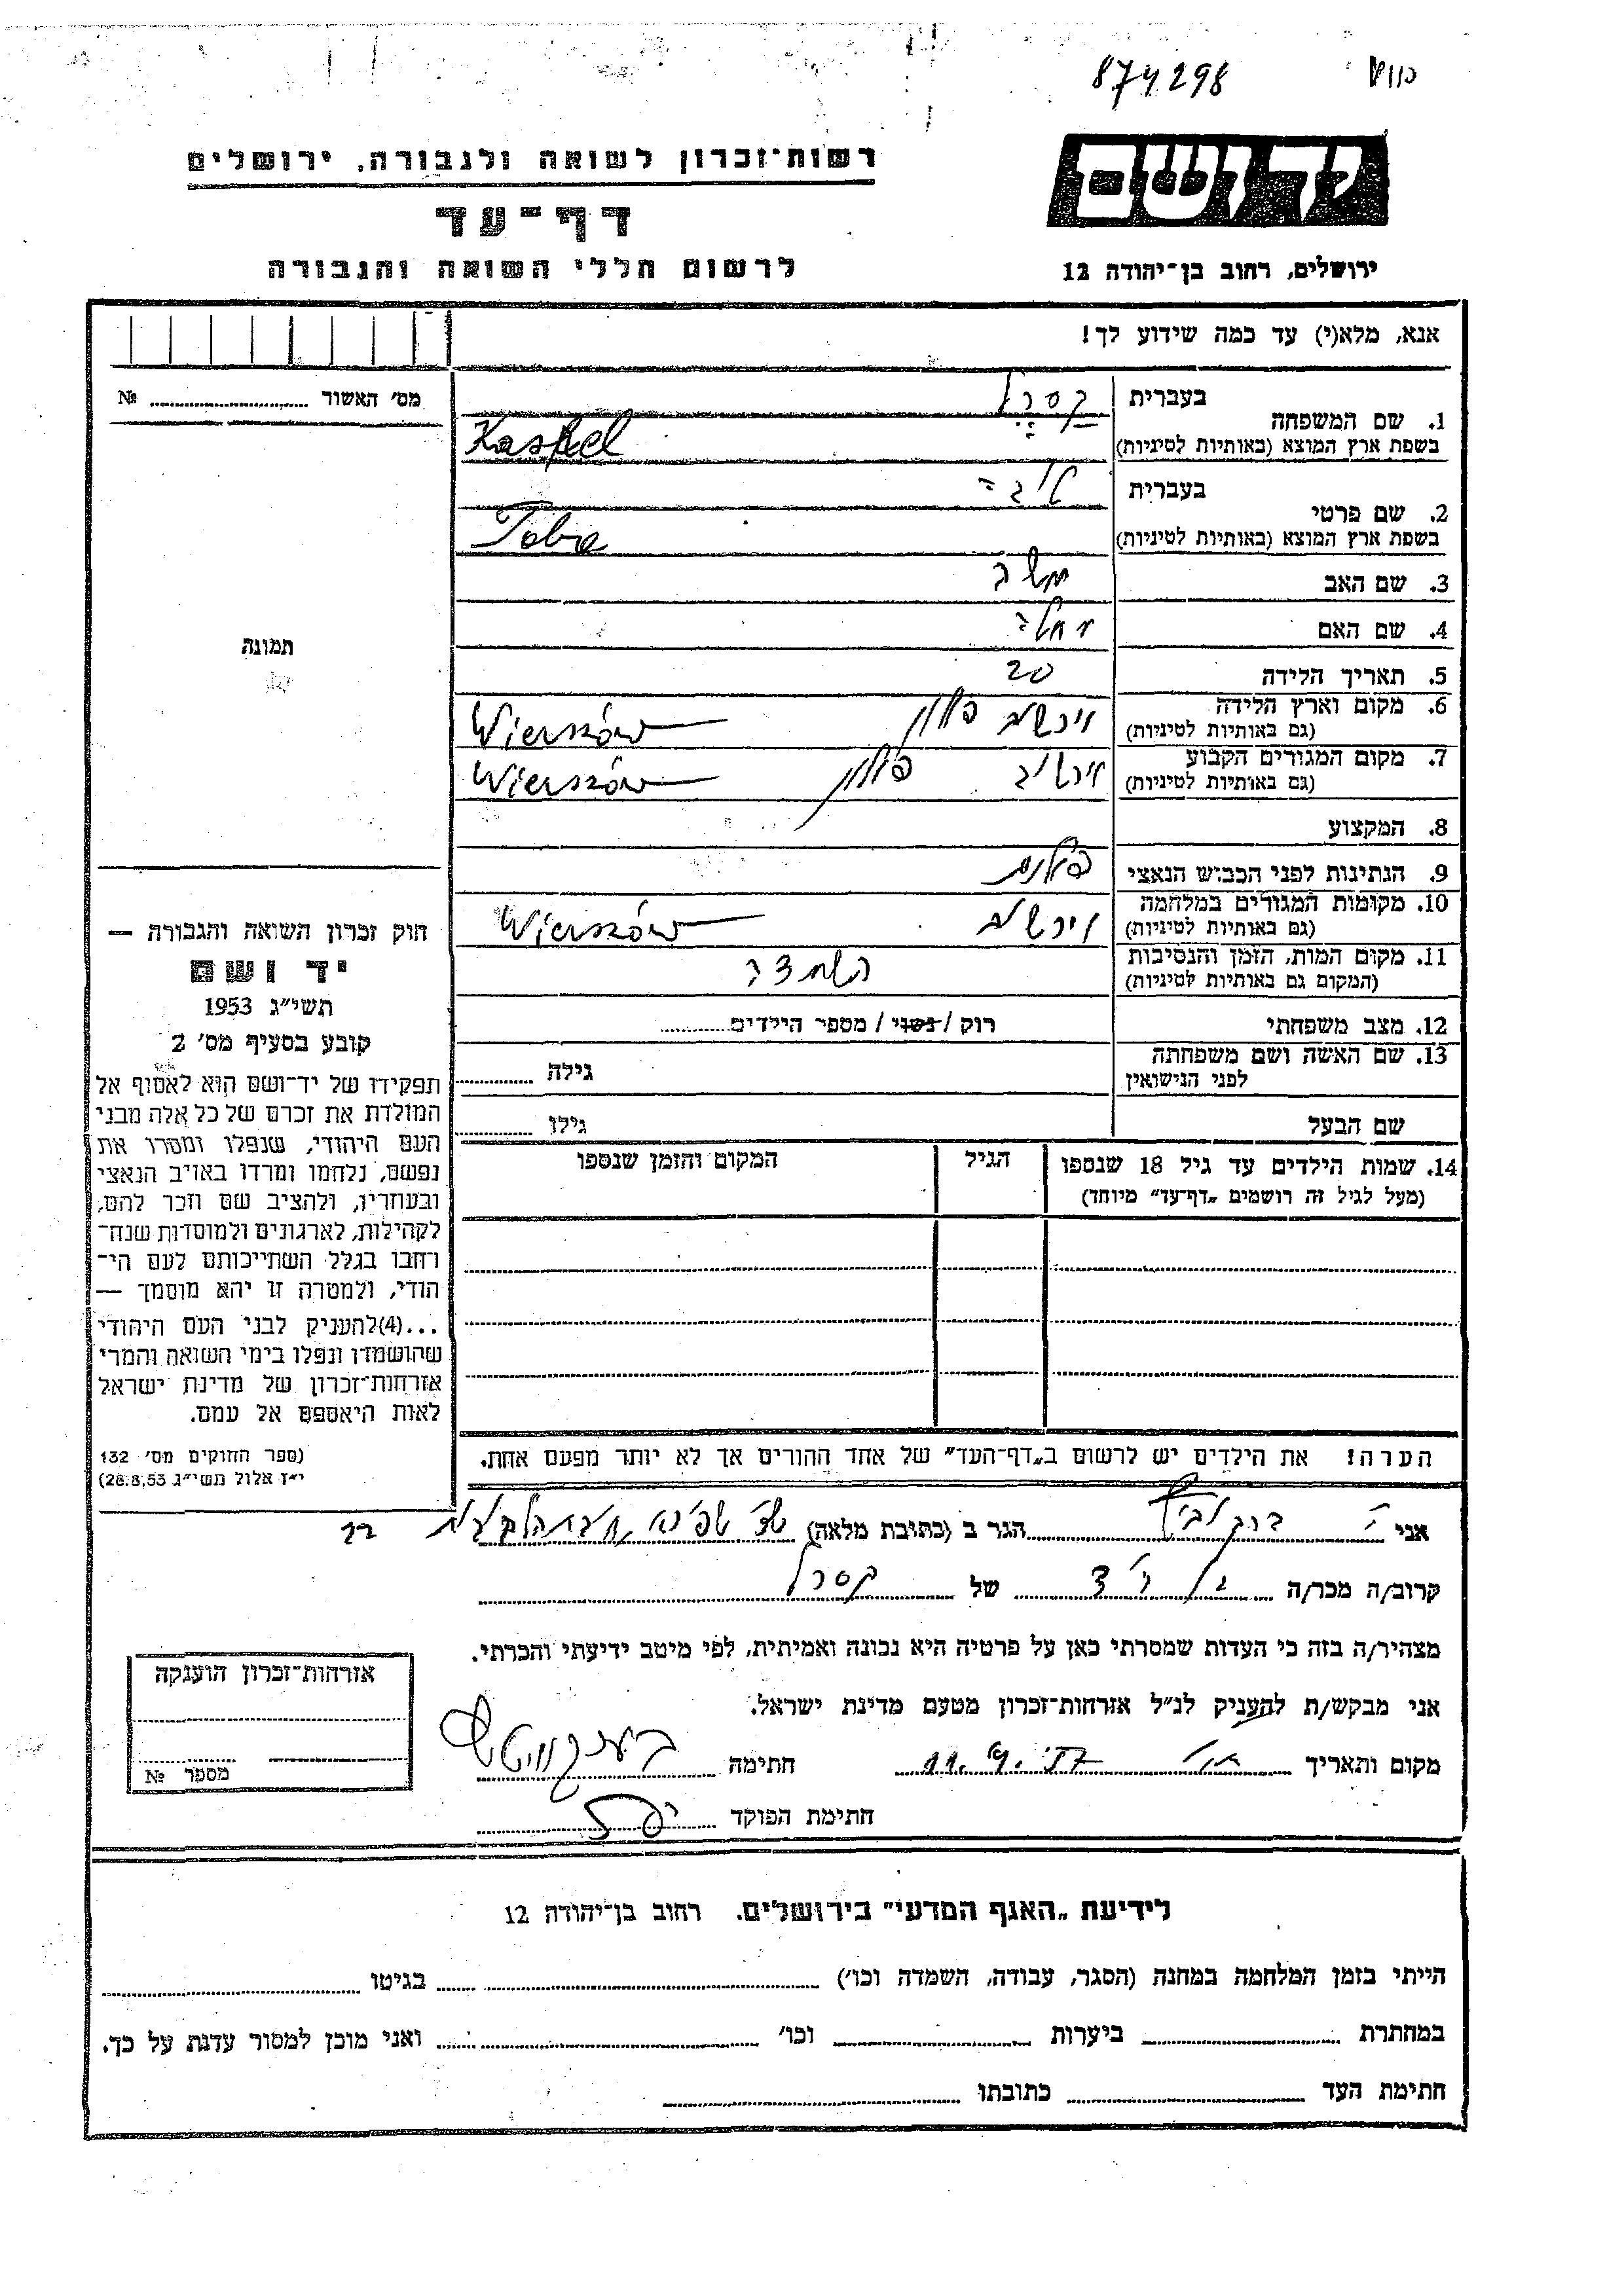 874298
יד ושם
רשות־זכרון לשואה ולגבורה, ירושלים
דף־עד
לרשום חללי השואה והגבורה
ירושלים, רחוב בן־יהודה 12
אנא, מלא(י) עד כמה שידוע לך!
מס' האשור № ....................
1. שם המשפחה
בעברית קסרל
בשפת ארץ המוצא (באותיות לטיניות)
2. שם פרטי
בעברית טובה
בשפת ארץ המוצא (באותיות לטיניות) Tobe
3. שם האב משה
4. שם האם
5. תאריך הלידה 20
6. מקום וארץ הלידה
(גם באותיות לטיניות) פולין Wierszów
7. מקום המגורים הקבוע
(גם באותיות לטיניות) פולין Wierszów
8. המקצוע
9. הנתינות לפני הכבוש הנאצי פולנית
10. מקומות המגורים במלחמה
(גם באותיות לטיניות) Wierszów
11. מקום המות, הזמן והנסיבות
(המקום גם באותיות לטיניות) השמדה
12. מצב משפחתי רוק / נשוי / מספר הילדים............
13. שם האשה ושם משפחתה
לפני הנישואין
גילה ............
שם הבעל
גילו ............
14. שמות הילדים עד גיל 18 שנספו
(מעל לגיל זה רושמים „דף־עד” מיוחד)
הגיל
המקום והזמן שנספו
הערה! את הילדים יש לרשום ב„דף־העד” של אחד ההורים אך לא יותר מפעם אחת.
תמונה
חוק זכרון השואה והגבורה —
יד ושם
תשי״ג 1953
קובע בסעיף מס' 2
תפקידו של יד־ושם הוא לאסוף אל
המולדת את זכרם של כל אלה מבני
העם היהודי, שנפלו ומסרו את
נפשם, נלחמו ומרדו באויב הנאצי
ובעוזריו, ולהציב שם וזכר להם,
לקהילות, לארגונים ולמוסדות שנח־
רחבו בגלל השתייכותם לעם הי־
הודי, ולמטרה זו יהא מוסמך —
...(4)להעניק לבני העם היהודי
שהושמדו ונפלו בימי השואה והמרי
אזרחות־זכרון של מדינת ישראל
לאות היאספם אל עמם.
(ספר החוקים מס' 132
י״ז אלול תשי״ג 28.8.53)
אני ............ הגר ב (כתובת מלאה) ............ 22
קרוב/ה מכר/ה ............ של קסרל
מצהיר/ה בזה כי העדות שמסרתי כאן על פרטיה היא נכונה ואמיתית, לפי מיטב ידיעתי והכרתי.
אני מבקש/ת להעניק לנ״ל אזרחות־זכרון מטעם מדינת ישראל.
מקום ותאריך ............ חתימה ............
חתימת הפוקד ............
אזרחות־זכרון הוענקה
מספר №
לידיעת „האגף המדעי” בירושלים. רחוב בן־יהודה 12
הייתי בזמן המלחמה במחנה (הסגר, עבודה, השמדה וכו') ............ בגיטו ............
במחתרת ............ ביערות ............ וכו' ............ ואני מוכן למסור עדות על כך.
חתימת העד ............ כתובתו ............